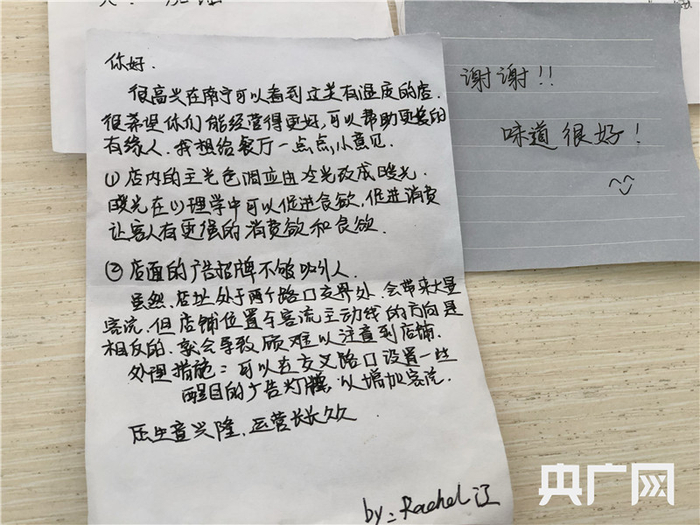 你好.
很高兴在南宁可以看到这些有温度的店.
很希望你们能经营得更好,可以帮助更多的
有缘人. 我想给餐厅一点点小意见.
① 店内的主光色调应由冷光改成暖光.
暖光在心理学中可以促进食欲,促进消费
让客人有更强的消费欲和食欲.
② 店面的广告招牌不够吸引人.
虽然,店址处于两个路口交界处,会带来大量
客流.但店铺位置与客流主动线的方向是
相反的.就会导致顾难以注意到店铺.
处理措施:可以在交叉路口设置一些
醒目的广告灯牌,以增加客流.
生意兴隆,运营长长久久
by:Rachel 江
谢谢!!
味道很好!
央广网
www.cnr.cn